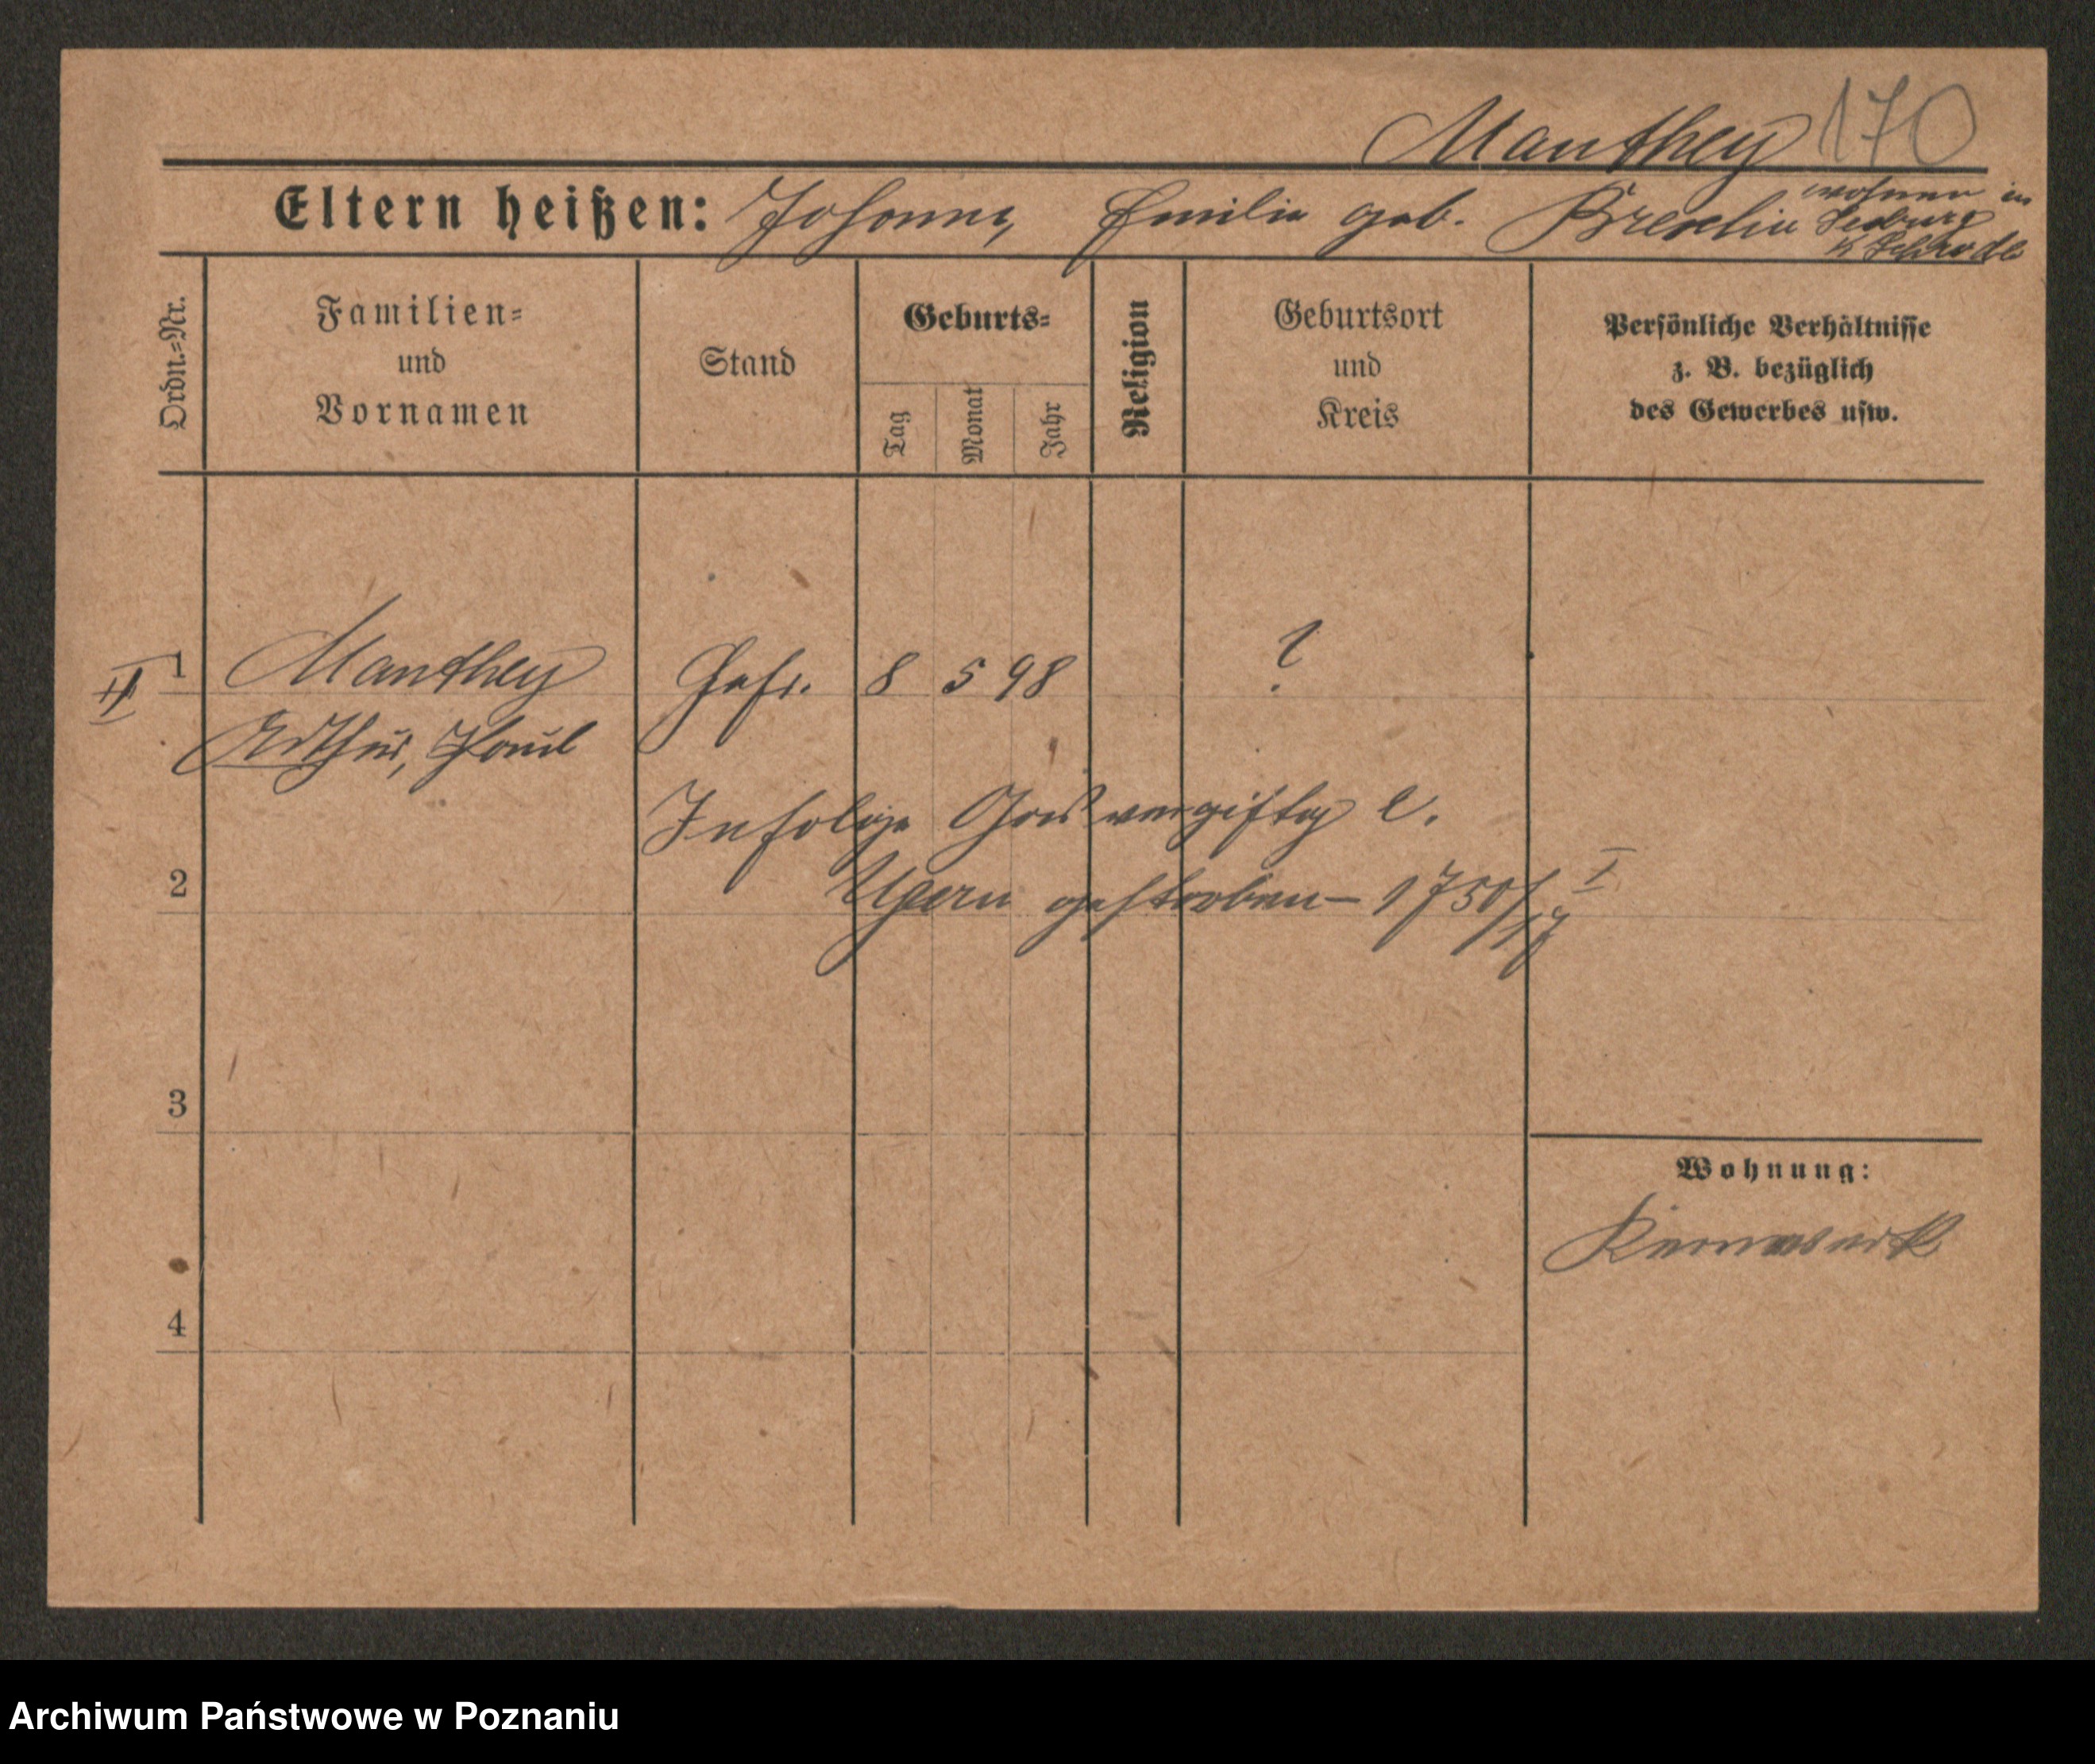 Manthey 170
Eltern heißen: Johann, Emilie geb.
wohnen in
K. Schroda
Ordn.-Nr.
Familien-
und
Vornamen
Stand
Geburts-
Tag
Monat
Jahr
Religion
Geburtsort
und
Kreis
Persönliche Verhältnisse
z. B. bezüglich
des Gewerbes usw.
II 1 Manthey Gefr. 8 5 98 ?
Arthur, Paul
Infolge Gasvergiftg
2 Ypern gestorben – 1750/17 I
3
4
Wohnung:
Kernwerk
Archiwum Państwowe w Poznaniu